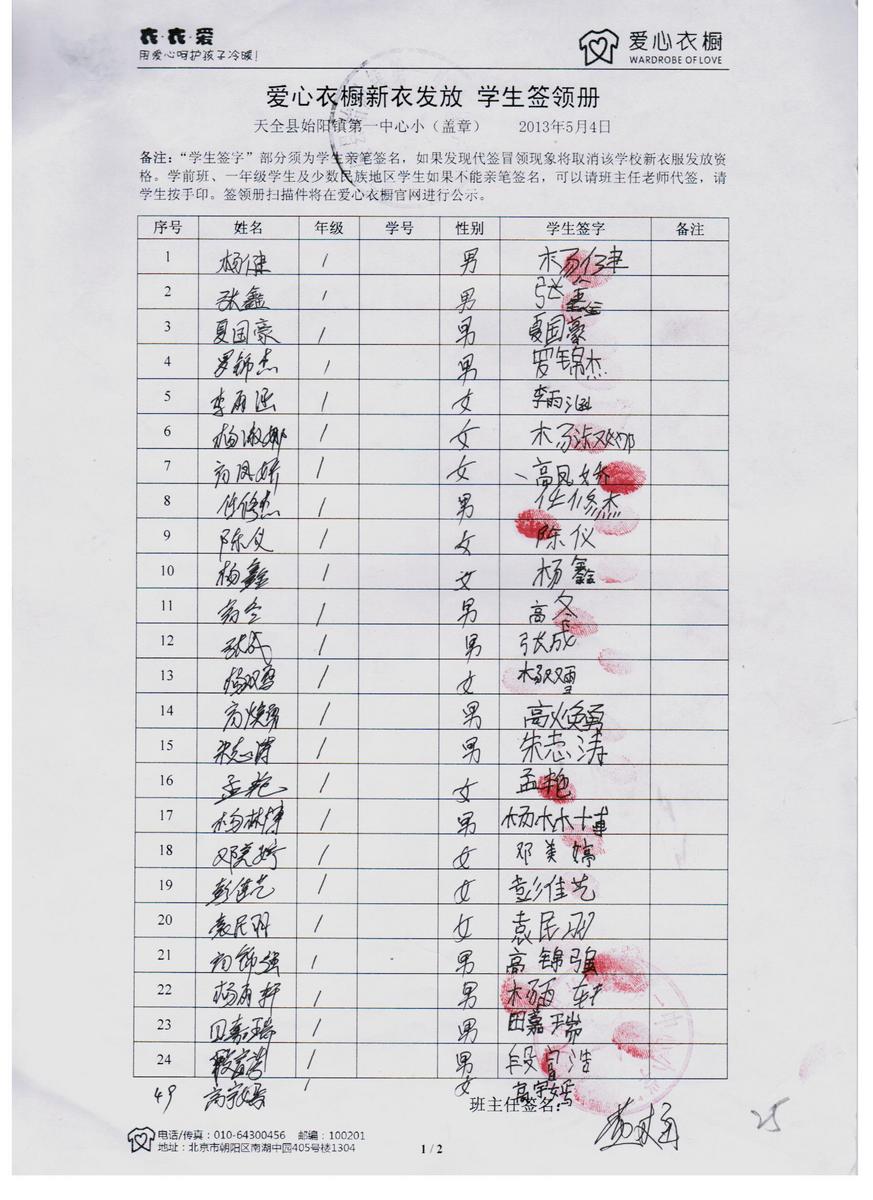 衣·衣·爱
用爱心呵护孩子冷暖!
爱心衣橱
WARDROBE OF LOVE
爱心衣橱新衣发放 学生签领册
天全县始阳镇第一中心小（盖章） 2013年5月4日
备注：“学生签字”部分须为学生亲笔签名，如果发现代签冒领现象将取消该学校新衣服发放资
格。学前班、一年级学生及少数民族地区学生如果不能亲笔签名，可以请班主任老师代签，请
学生按手印。签领册扫描件将在爱心衣橱官网进行公示。
序号 姓名 年级 学号 性别 学生签字 备注
1 杨健 1 男 杨健
2 张鑫 1 男 张鑫
3 夏国豪 1 男 夏国豪
4 罗锦杰 1 男 罗锦杰
5 李雨涵 1 女 李雨涵
6 杨淑娜 1 女 杨淑娜
7 高凤娇 1 女 高凤娇
8 任修杰 1 男 任修杰
9 陈仪 1 女 陈仪
10 杨鑫 1 女 杨鑫
11 1 男
12 张成 1 男 张成
13 杨双雪 1 女 杨双雪
14 高焕勇 1 男 高焕勇
15 朱志涛 1 男 朱志涛
16 孟艳 1 女 孟艳
17 杨林博 1 男 杨林博
18 邓美婷 1 女 邓美婷
19 彭佳艺 1 女 彭佳艺
20 袁民羽 1 女 袁民羽
21 高锦强 1 男 高锦强
22 杨雨轩 1 男 杨雨轩
23 田嘉瑞 1 男 田嘉瑞
24 1 男 段富浩
49 高宇嫣 1 女 高宇嫣
班主任签名：
25
电话/传真：010-64300456 邮编：100201
地址：北京市朝阳区南湖中园405号楼1304
1 / 2